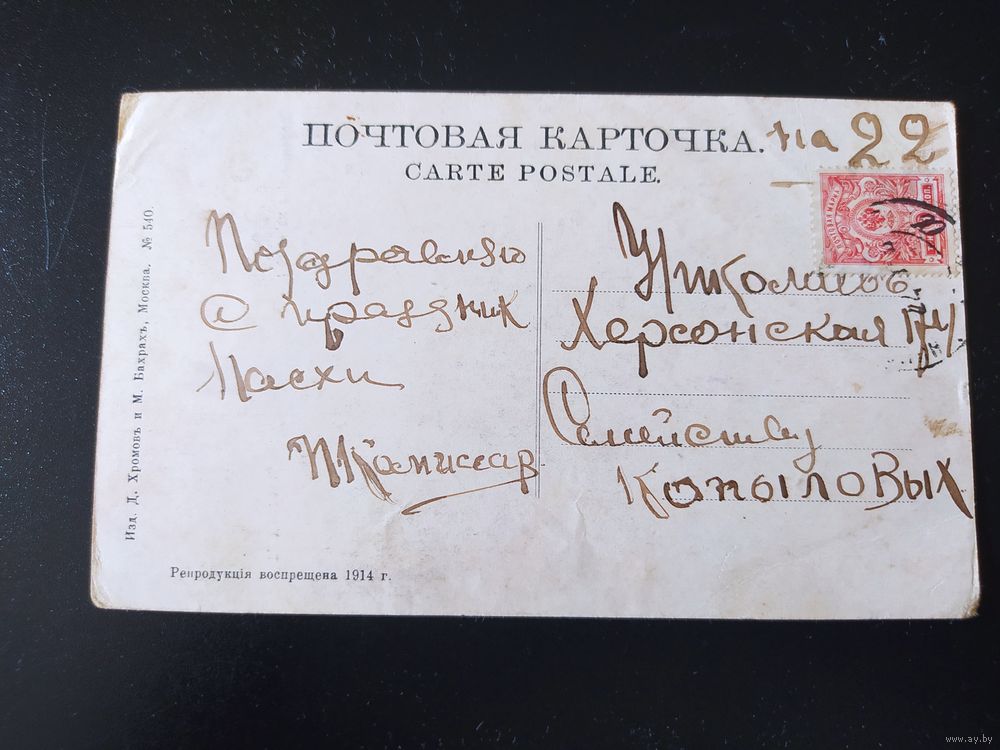 ПОЧТОВАЯ КАРТОЧКА.
на 22
CARTE POSTALE.
Поздравляю
с праздник
Пасхи
Комиссар
Николаевъ
Херсонская
Семейству
Копыловых
Изд. Д. Хромовъ и М. Бахрахъ, Москва. № 540.
Репродукція воспрещена 1914 г.
www.ay.by